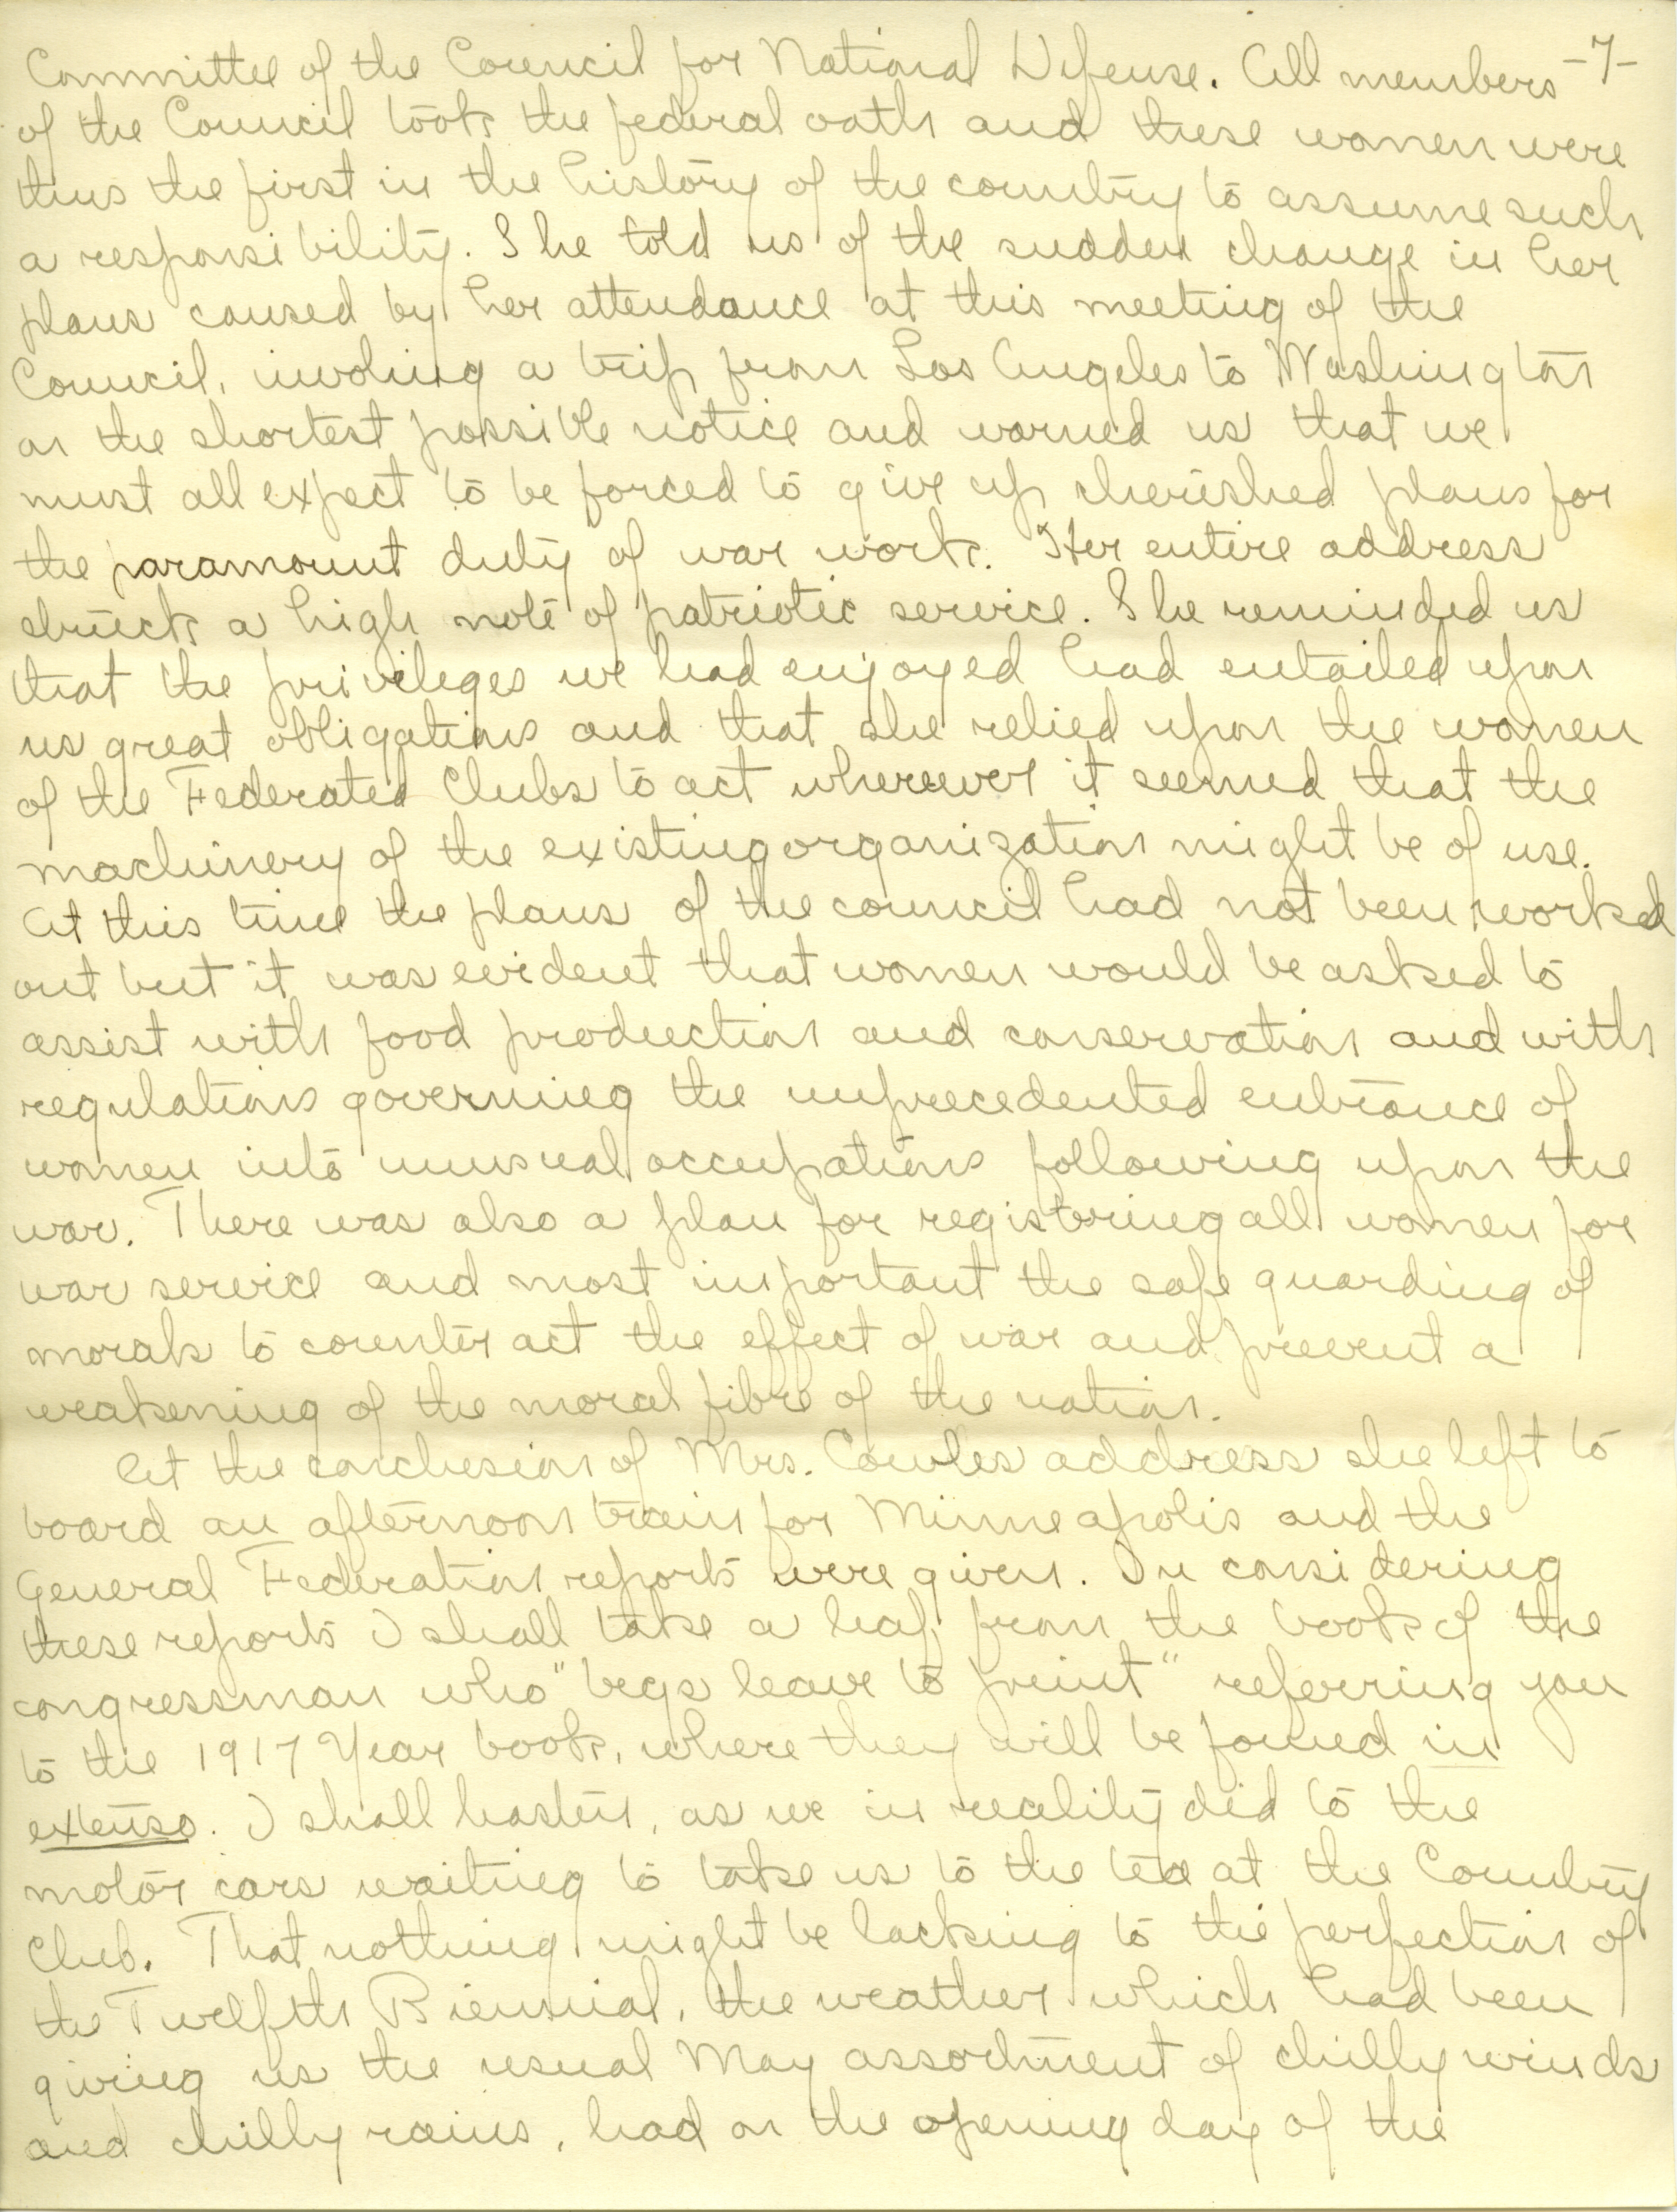 Committee of the Council for National Defense. All members -7-
of the Council took the federal oath and these women were
thus the first in the history of the country to assume such
a responsibility. She told us of the sudden change in her
plans caused by her attendance at this meeting of the
Council, involving a trip from Los Angeles to Washington
on the shortest possible notice and warned us that we
must all expect to be forced to give up cherished plans for
the paramount duty of war work. Her entire address
struck a high note of patriotic service. She reminded us
that the privileges we had enjoyed had entailed upon
us great obligations and that she relied upon the women
of the Federated Clubs to act wherever it seemed that the
machinery of the existing organization might be of use.
At this time the plans of the council had not been worked
out but it was evident that women would be asked to
assist with food production and conservation and with
regulations governing the unprecedented entrance of
women into unusual occupations following upon the
war. There was also a plan for registering all women for
war service and most important the safe guarding of
morals to counter act the effect of war and prevent a
weakening of the moral fibre of the nation.
At the conclusion of Mrs. Cowles address she left to
board an afternoon train for Minneapolis and the
General Federation reports were given. In considering
these reports I shall take a leaf from the book of the
congressman who "begs leave to print" referring you
to the 1917 Year book, where they will be found in
extenso. I shall hasten, as we in reality did to the
motor cars waiting to take us to the tea at the Country
Club. That nothing might be lacking to the perfection of
the Twelfth Biennial, the weather which had been
giving us the usual May assortment of chilly winds
and chilly rains, had on the opening day of the